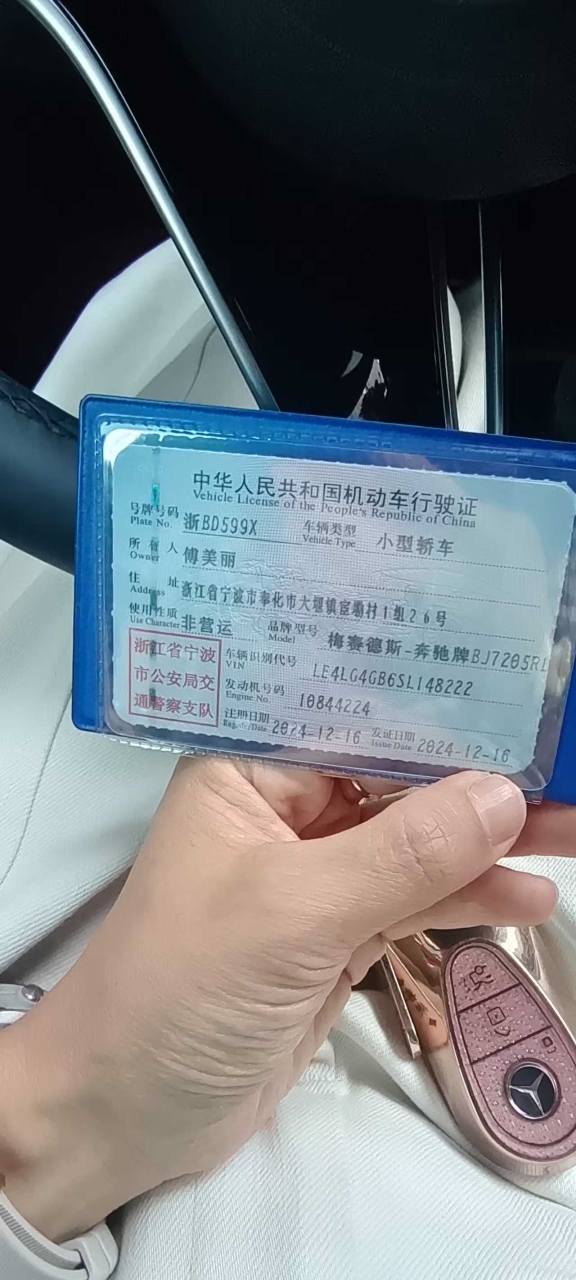 中华人民共和国机动车行驶证
Vehicle License of the People's Republic of China
号牌号码 浙BD599X 车辆类型 小型轿车
Plate No. Vehicle Type
所有人 傅美丽
Owner
住址 浙江省宁波市奉化市大堰镇 村1组26号
Address
使用性质 非营运 品牌型号 梅赛德斯-奔驰牌BJ7205RL
Use Character Model
浙江省宁波
市公安局交
通警察支队
车辆识别代号 LE4LG4GB6SL148222
VIN
发动机号码 10844224
Engine No.
注册日期 2024-12-16 发证日期 2024-12-16
Register Date Issue Date